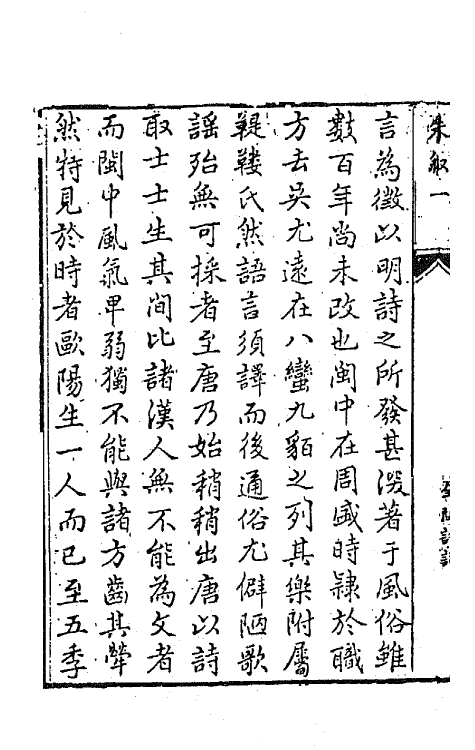 朱叙一
言為徵以明詩之所發甚深著于風俗雖
數百年尚未改也閩中在周盛時隸於職
方去吳尤遠在八蠻九貊之列其樂附屬
鞮鞻氏然語言須譯而後通俗尤僻陋歌
謡殆無可採者至唐乃始稍稍出唐以詩
取士士生其間比諸漢人無不能為文者
而閩中風氣卑弱獨不能與諸方齒其犖
然特見於時者歐陽生一人而已至五季